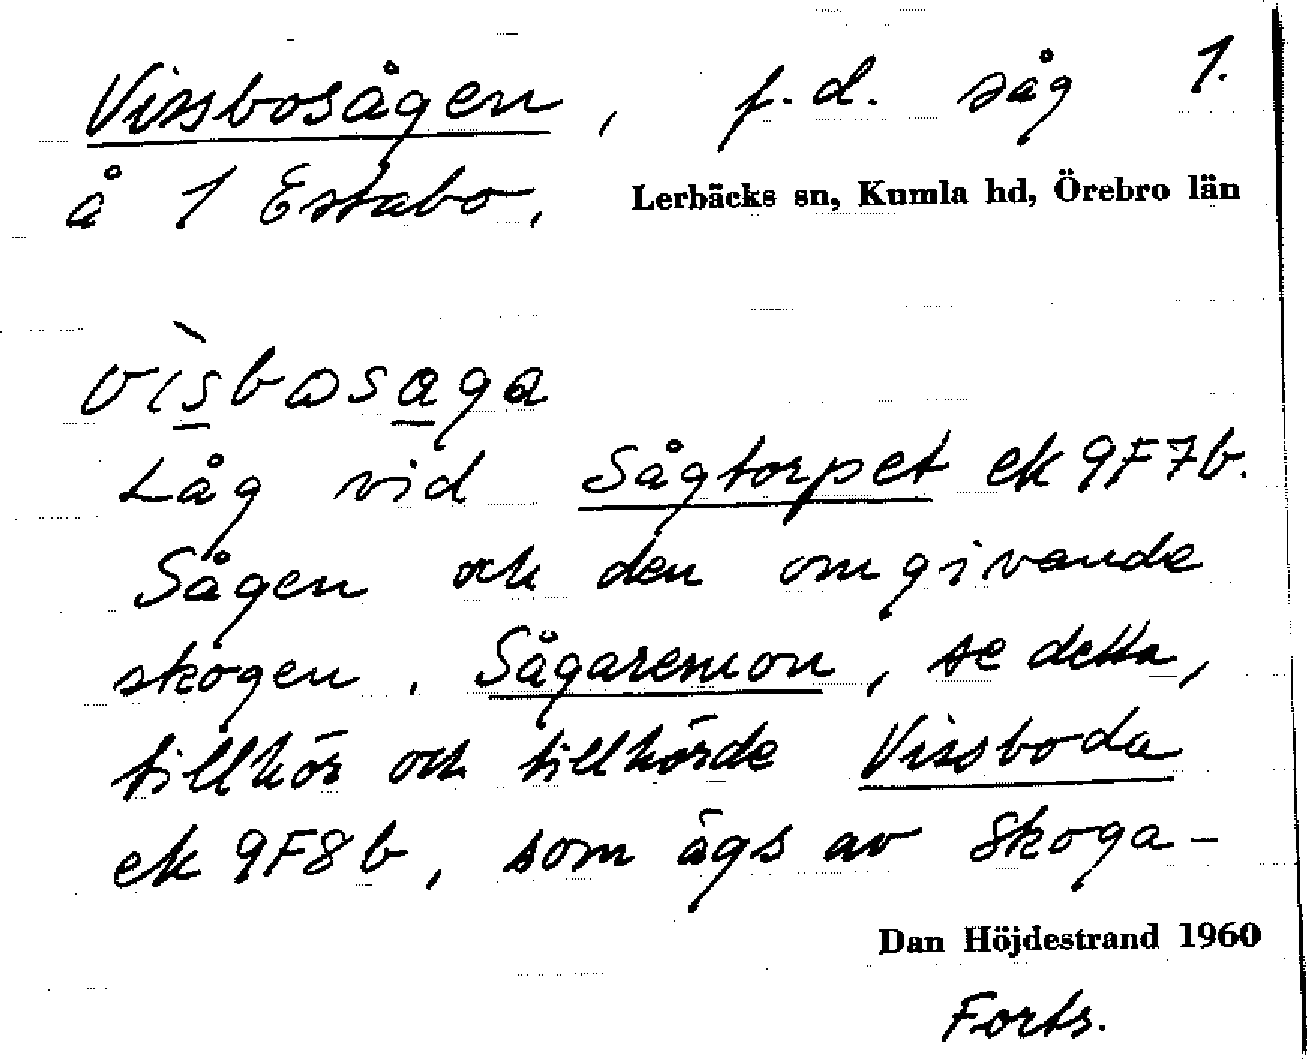 Vissbosågen, f.d. såg 1.
å 1 Estabo,
Lerbäcks sn, Kumla hd, Örebro län
vìsbosaga
Låg vid Sågtorpet ek 9F7b.
Sågen och den omgivande
skogen, Sågaremon, se detta,
tillhör och tillhörde Vissboda
ek 9F8b, som ägs av Skoga-
Dan Höjdestrand 1960
Forts.